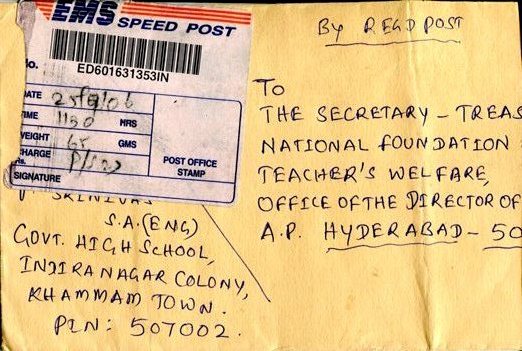 EMS SPEED POST
No.
ED601631353IN
DATE
TIME HRS
WEIGHT GMS
CHARGE
Rs.
SIGNATURE
POST OFFICE
STAMP
BY REGD POST
To
THE SECRETARY - TREAS
NATIONAL FOUNDATION
TEACHER'S WELFARE,
OFFICE OF THE DIRECTOR OF
A.P. HYDERABAD - 50
SRINIVAS
S.A.(ENG)
GOVT. HIGH SCHOOL,
INDIRA NAGAR COLONY,
KHAMMAM TOWN.
PIN: 507002.